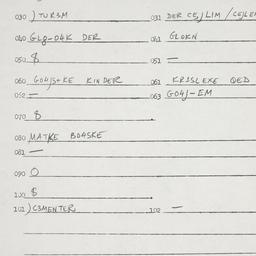 030 ) TURSM 031 DER CEJLIM / CEJLEM
040 GLO-04K DER 041 GLOKN
050 $ 051 —
060 G04JS+KE KINDER 061 KRISLEXE QED
062 — 063 G04J-EM
070 $
080 MATKE BOASKE
081 —
090 O
100 $
101 ) C3MENTER 102 —